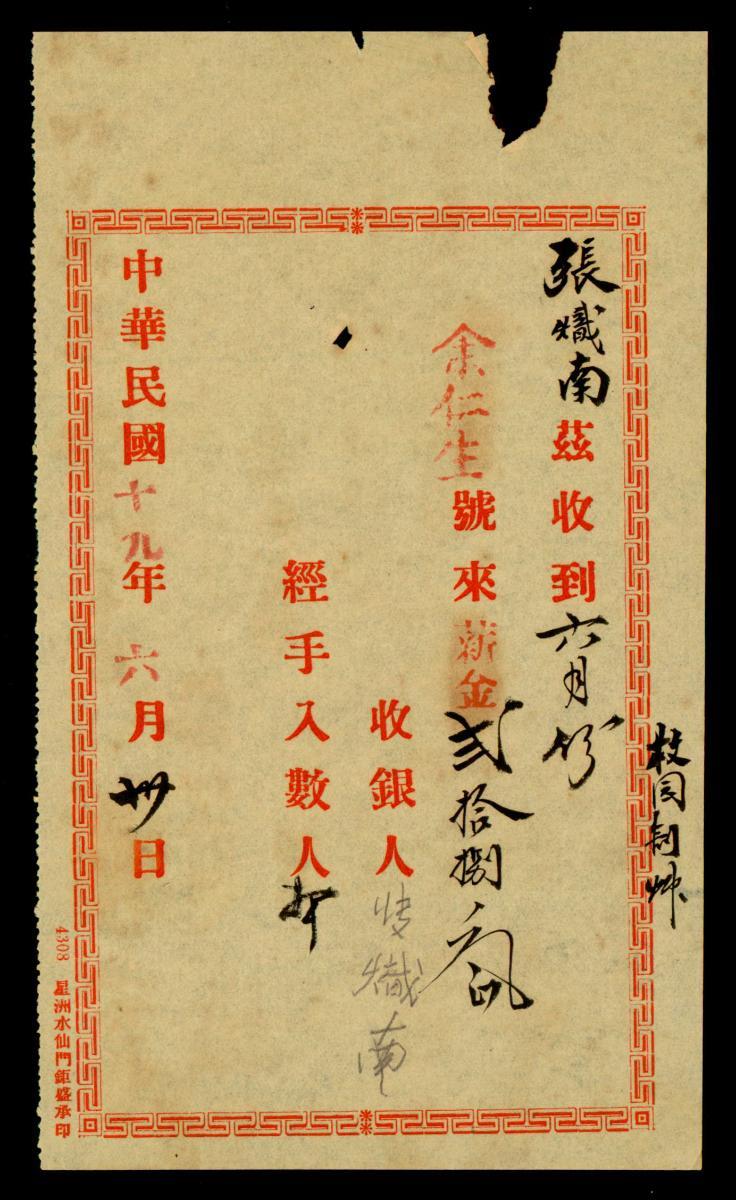 張熾南茲收到六月份
余仁生號來薪金弍拾捌元
收銀人 張熾南
經手入數人
中華民國十九年六月卅日
4308 星洲水仙門鉅盛承印